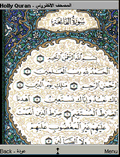 Holly Quran - المصحف الألكتروني
سورة الفاتحة
بسم الله الرحمن الرحيم
الحمد لله رب العالمين
الرحمن الرحيم ملك يوم الدين
إياك نعبد وإياك نستعين
اهدنا الصراط المستقيم صراط الذين
أنعمت عليهم غير المغضوب عليهم
ولا الضالين
Back - عودة Menu